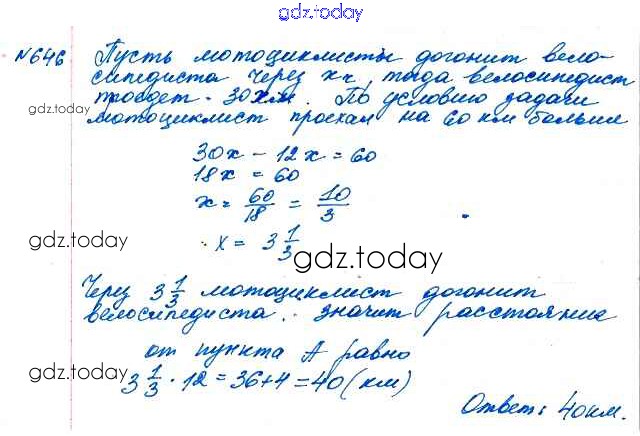 gdz.today
№646 Пусть мотоциклисты догонит вело-
сипедиста через x ч, тогда велосипедист
проедет - 30x км. По условию задачи
мотоциклист проехал на 60 км больше
gdz.today
30x - 12x = 60
18x = 60
x = 60/18 = 10/3
gdz.today
x = 3 1/3
gdz.today
Через 3 1/3 мотоциклист догонит
велосипедиста. значит расстояние
от пункта А равно
gdz.today
3 1/3 · 12 = 36+4 = 40 (км)
Ответ: 40км.